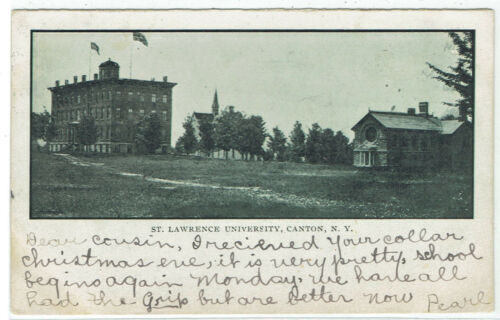 ST. LAWRENCE UNIVERSITY, CANTON, N. Y.
Dear cousin, I recieved Your collar
christmas eve, it is very pretty, school
begins again Monday, we have all
had the Grip but are better now Pearl